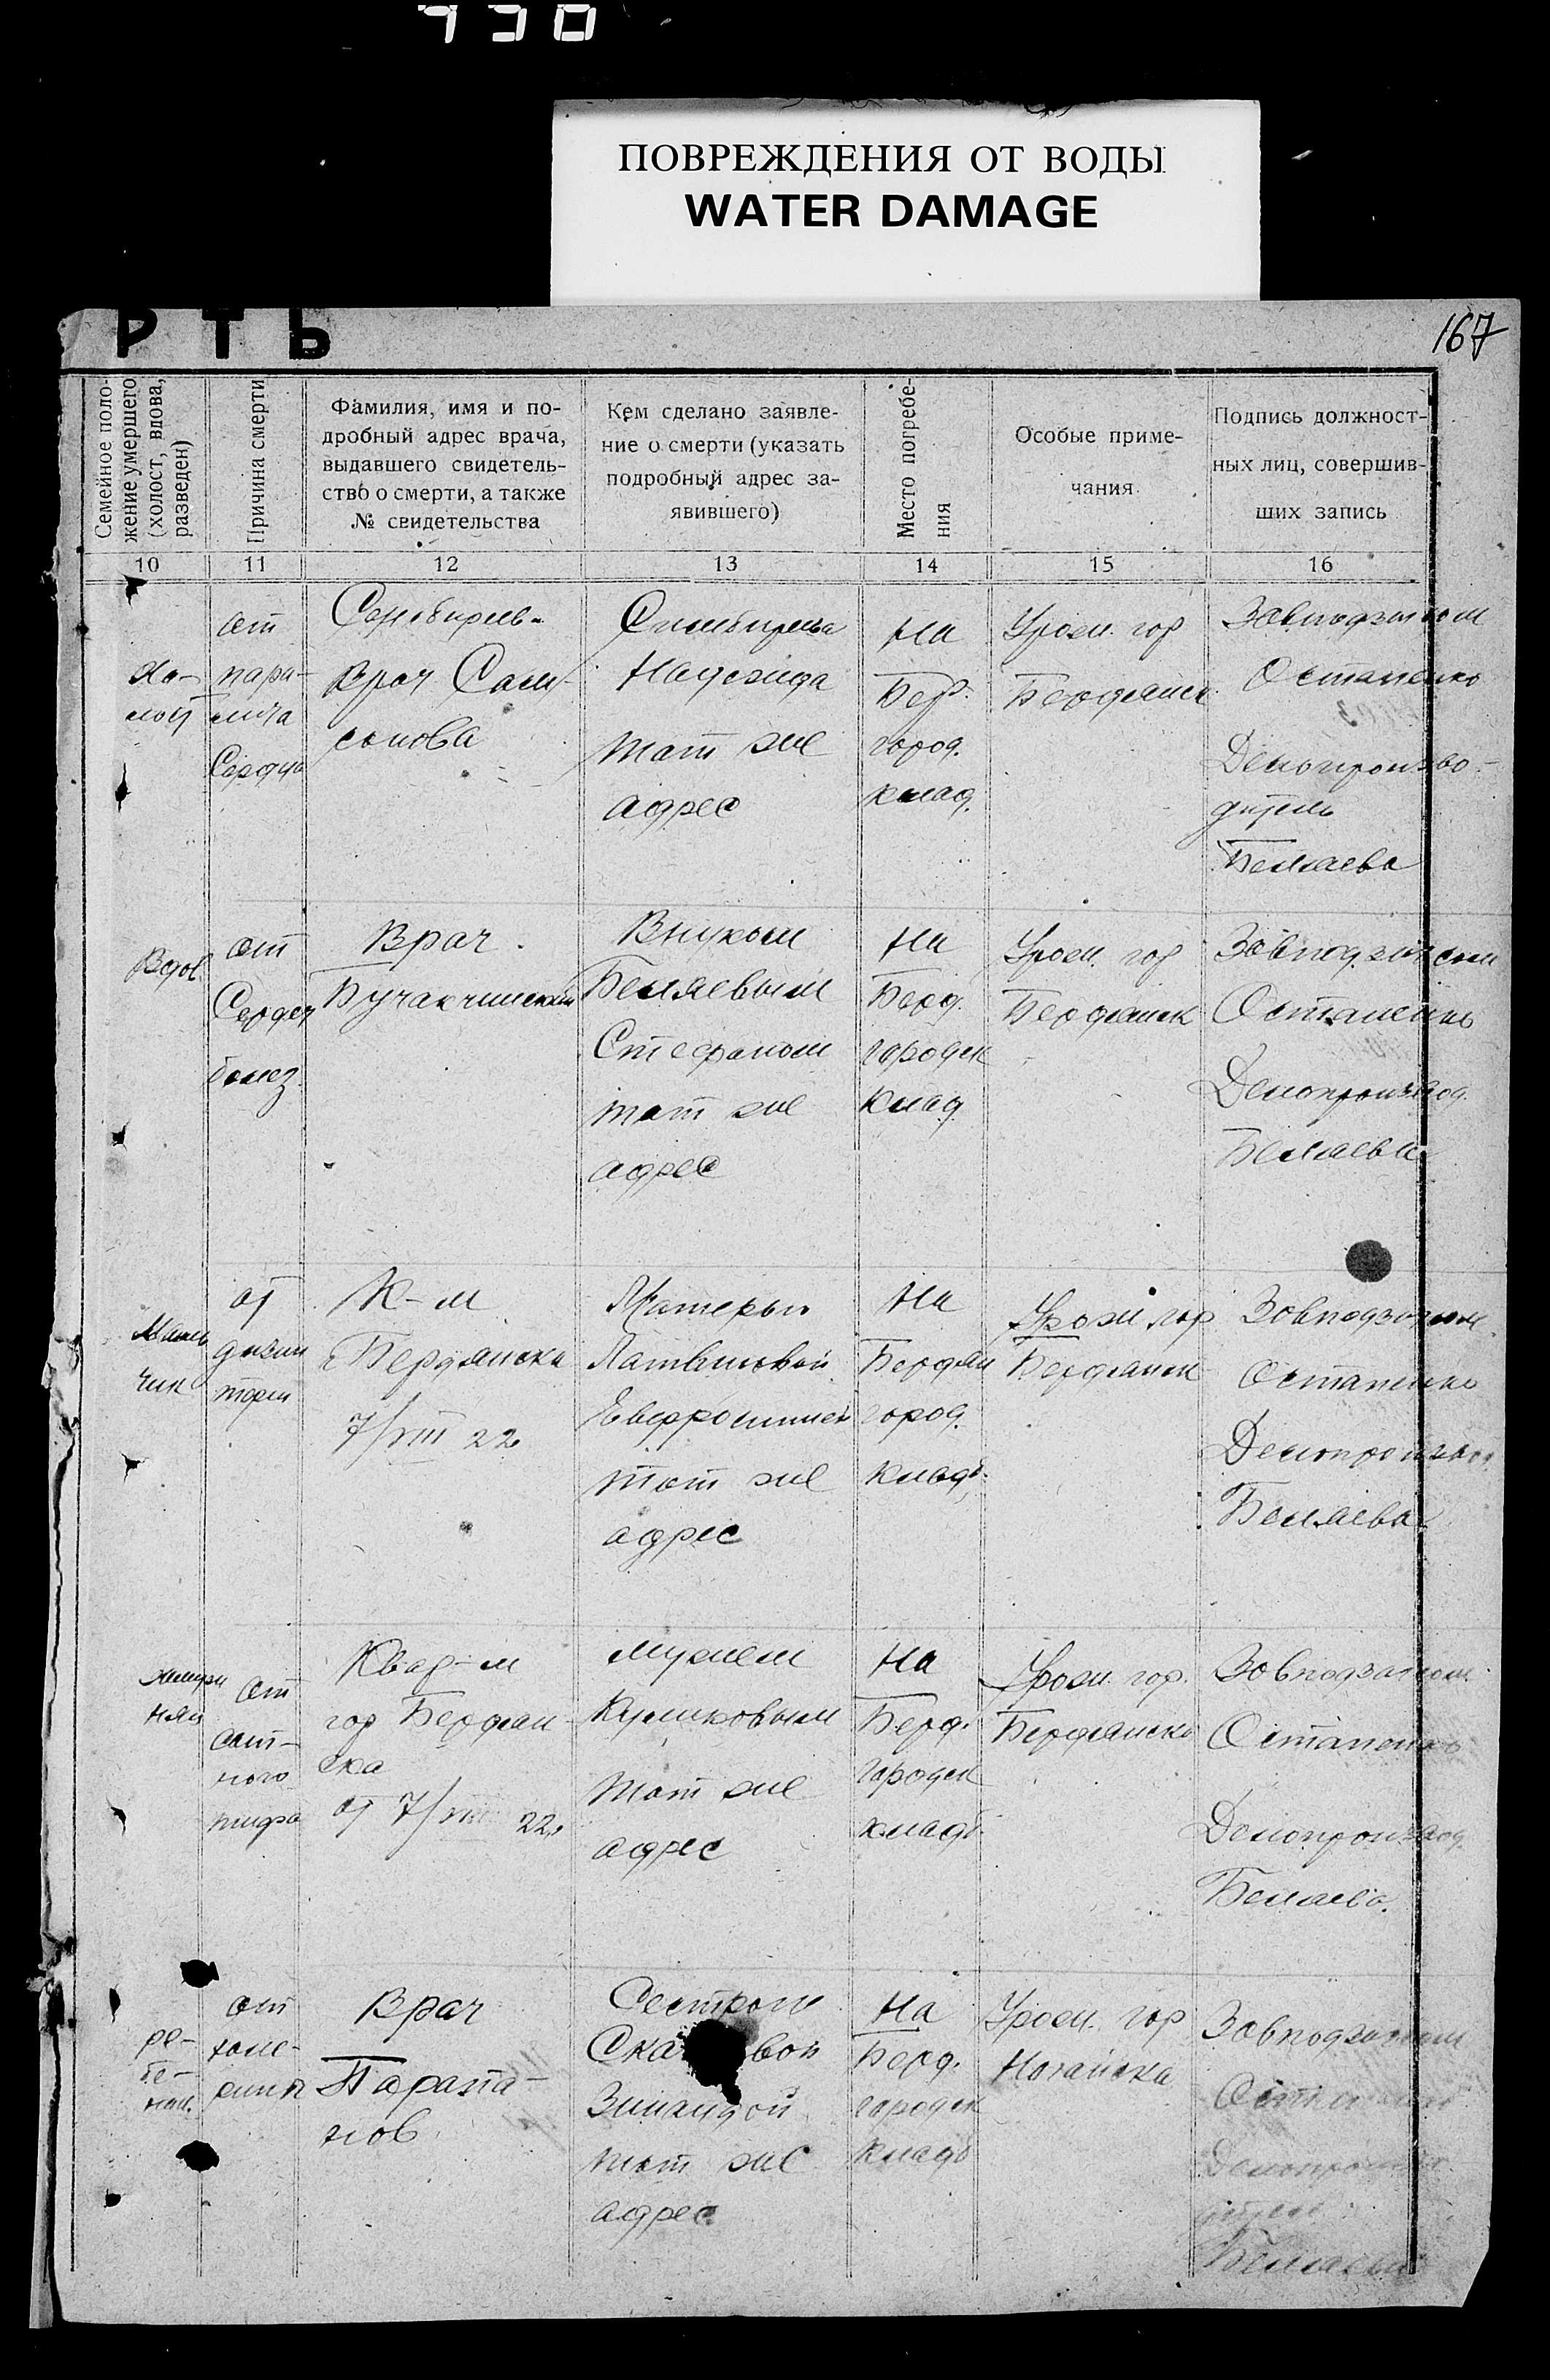 730
ПОВРЕЖДЕНИЯ ОТ ВОДЫ
WATER DAMAGE
РТЬ
167
Семейное поло-
жение умершего
(холост, вдова,
разведен)
Причина смерти
Фамилия, имя и по-
дробный адрес врача,
выдавшего свидетель-
ство о смерти, а также
№ свидетельства
Кем сделано заявле-
ние о смерти (указать
подробный адрес за-
явившего)
Место погребе-
ния
Особые приме-
чания
Подпись должност-
ных лиц, совершив-
ших запись
10
11
12
13
14
15
16
от
пара-
лича
Сердца
врач Сам-
сонова
Надежда
тот же
адрес
На
Бер.
город.
клад.
Урож. гор
Бердянск
Остапенко
Делопроизво-
дитель
Беляева
Вдов.
от
Сердеч
болез.
Врач
Внуком
Беляевым
Стефаном
тот же
адрес
На
Берд.
городск
клад.
Урож. гор
Бердянск
Остапенко
Делопроизвод.
Беляева
Маль
чик
от
дизен
терии
К-м
Бердянска
7/VIII 22
Матерью
тот же
адрес
На
Бердян
город.
кладб.
Урож гор
Бердянск
Остапенко
Делопроизвод.
Беляева
от
сып-
ного
тифа
Квар-м
гор Бердян-
ска
от 7/VIII 22
мужем
Куликовым
тот же
адрес
На
Берд.
городск
кладб
Урож. гор.
Бердянска
Остапенко
Делопроизвод.
Беляева
ре-
бе-
нок.
от
холе-
рины
Врач
Тарапа-
нов
Сестрой
Зинаидой
тот же
адрес
На
Берд.
городск
кладб
Урож. гор
Ногайска
Беляева